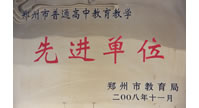 郑州市普通高中教育教学
先进单位
郑州市教育局
二〇〇八年十一月